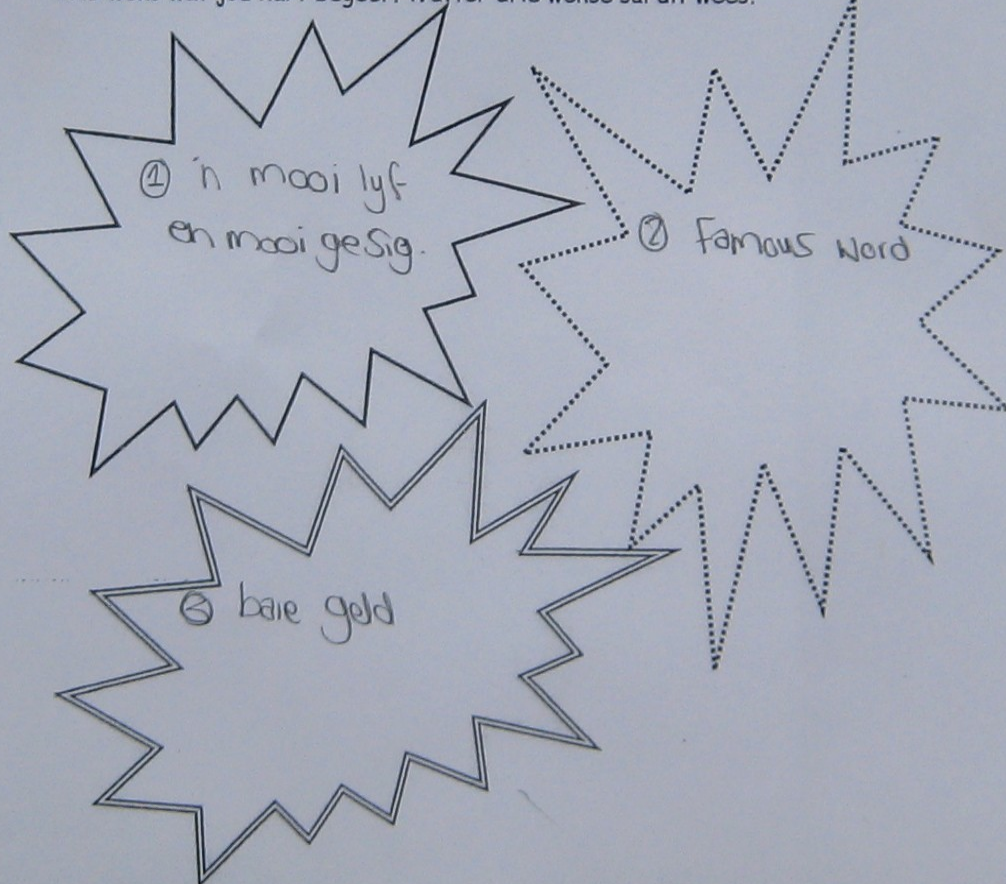 ① 'n mooi lyf
en mooi gesig.
② Famous word
③ baie geld